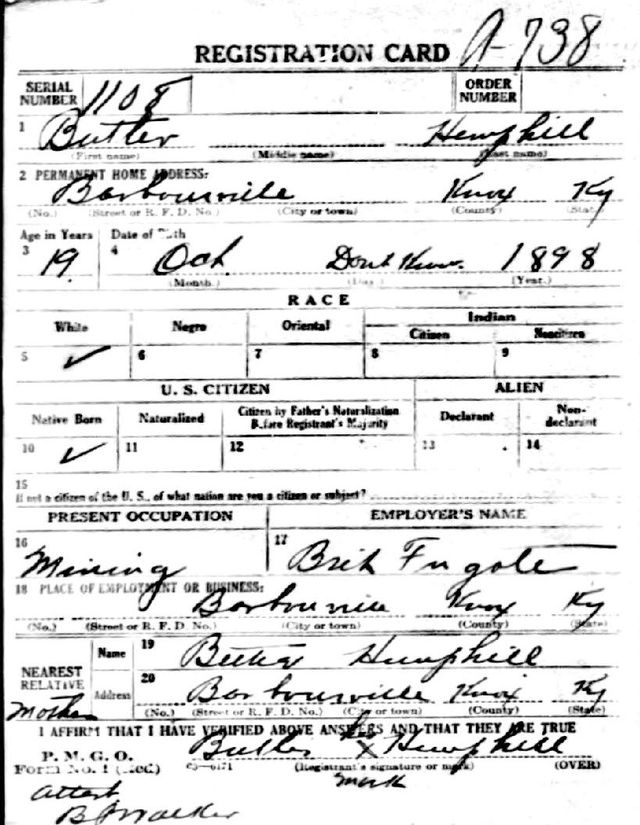 REGISTRATION CARD A-738
SERIAL NUMBER 1108 ORDER NUMBER
1 Butler Hemphill
(First name) (Middle name) (Last name)
2 PERMANENT HOME ADDRESS:
Barbourville Knox Ky
(No.) (Street or R. F. D. No.) (City or town) (County) (State)
Age in Years Date of Birth
3 19 4 Oct. Dont Know. 1898
(Month.) (Day.) (Year.)
RACE
White Negro Oriental Indian
Citizen Noncitizen
5 ✓ 6 7 8 9
U. S. CITIZEN ALIEN
Native Born Naturalized Citizen by Father's Naturalization Before Registrant's Majority Declarant Non-declarant
10 ✓ 11 12 13 14
15
If not a citizen of the U. S., of what nation are you a citizen or subject?
PRESENT OCCUPATION EMPLOYER'S NAME
16 Mining 17 Brit Fugate
18 PLACE OF EMPLOYMENT OR BUSINESS:
Barbourville Knox Ky
(No.) (Street or R. F. D. No.) (City or town) (County) (State)
NEAREST RELATIVE Name 19 Hemphill
Mother Address 20 Barbourville Knox Ky
(No.) (Street or R. F. D. No.) (City or town) (County) (State)
I AFFIRM THAT I HAVE VERIFIED ABOVE ANSWERS AND THAT THEY ARE TRUE
P. M. G. O. Butler his x Hemphill
Form No. 1 (Red) 03—6171 (Registrant's signature or mark) (OVER)
mark
Attest
B Walker